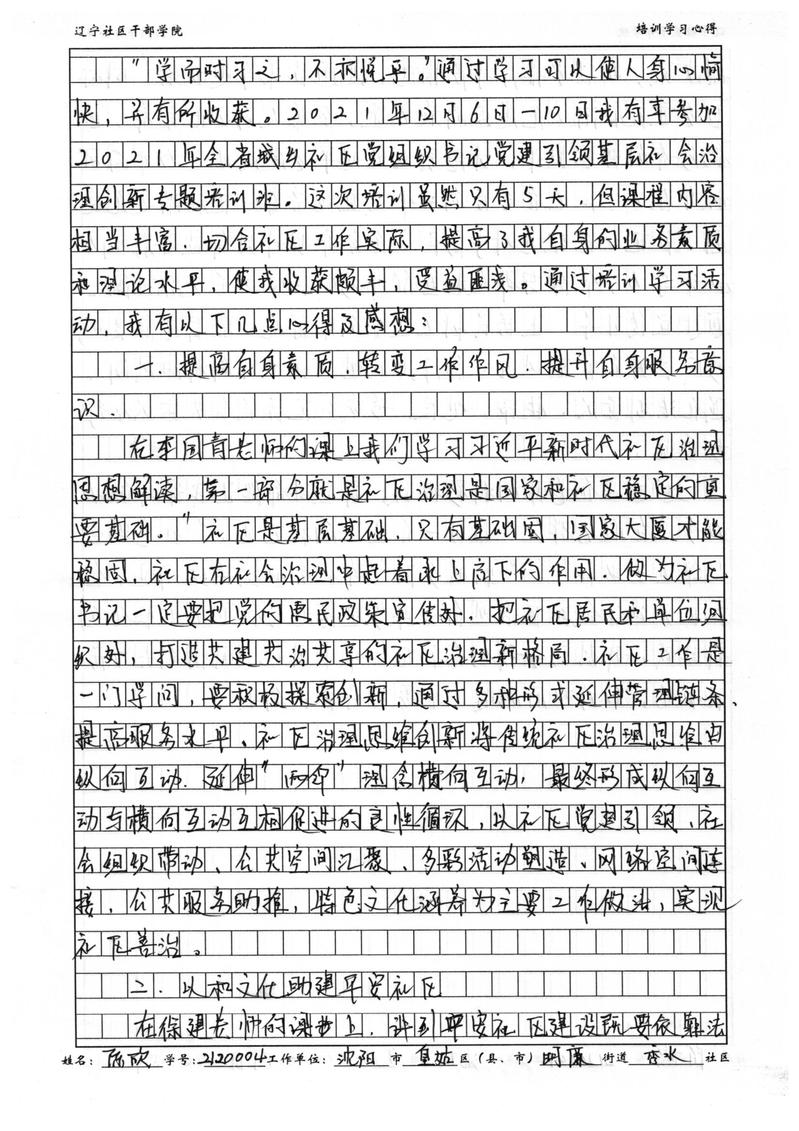 辽宁社区干部学院 培训学习心得
"学而时习之,不亦悦乎。"通过学习可以使人身心愉
快,并有所收获。2021年12月6日—10日我有幸参加
2021年全省城乡社区党组织书记党建引领基层社会治
理创新专题培训班。这次培训虽然只有5天,但课程内容
相当丰富.切合社区工作实际,提高了我自身的业务素质
和理论水平,使我收获颇丰,受益匪浅。通过培训学习活
动,我有以下几点心得及感想:
一.提高自身素质.转变工作作风.提升自身服务意
识.
在李国青老师的课上我们学习习近平新时代社区治理
思想解读,第一部分就是社区治理是国家和社区稳定的重
要基础。"社区是基层基础.只有基础固,国家大厦才能
稳固.社区在社会治理中起着承上启下的作用.做为社区
书记一定要把党的惠民政策宣传好.把社区居民和单位组
织好,打造共建共治共享的社区治理新格局.社区工作是
一门学问,要积极探索创新,通过多种形式延伸管理链条、
提高服务水平、社区治理思维创新将传统社区治理思维由
纵向互动.延伸""理念横向互动,最终形成纵向互
动与横向互动互相促进的良性循环,以社区党建引领、社
会组织带动、公共空间汇聚、多彩活动塑造、网络空间连
接、公共服务助推,特色文化涵养为主要工作做法,实现
社区善治。
二.以和文化助建平安社区
在徐建老师的课堂上.讲到平安社区建设既要依靠法
姓名:陈欣 学号:2120004 工作单位:沈阳 市 皇姑 区(县、市) 明廉 街道 社区